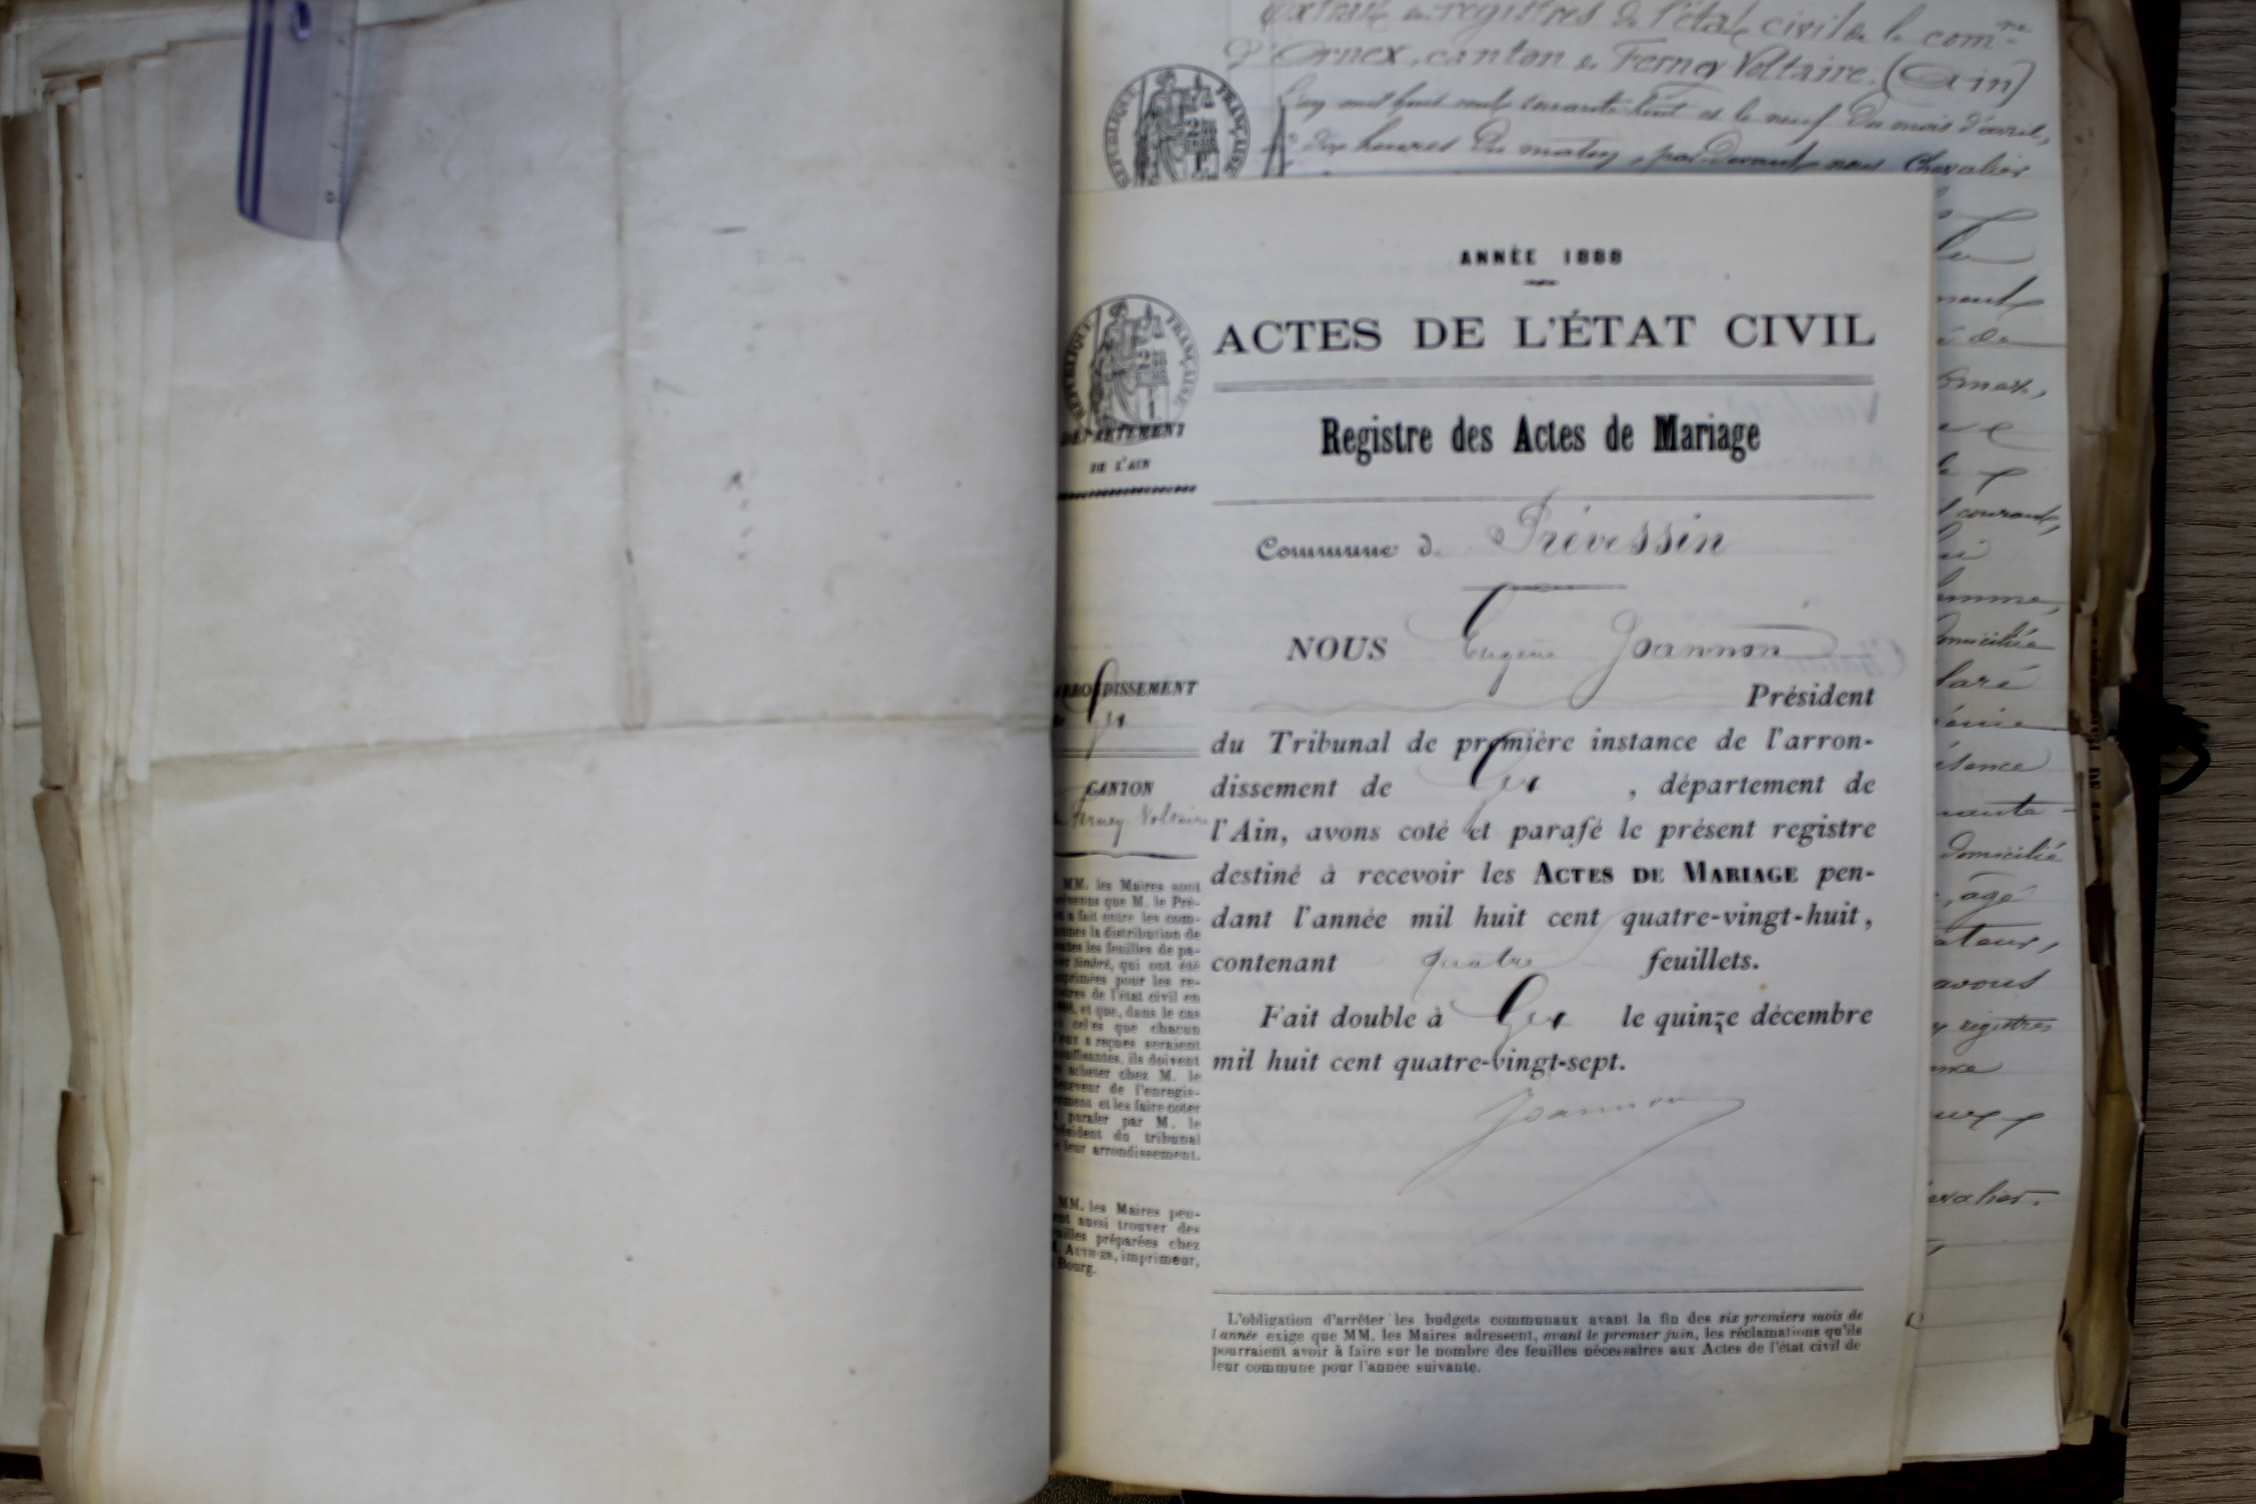 extrait des registres de l'état civil de la com.ne
d'Ornex, canton de Ferney Voltaire. (Ain)
et le neuf du mois d'avril,
dix heures du matin, pardevant nous Chevalier
RÉPUBLIQUE FRANÇAISE
ANNÉE 1888
ACTES DE L'ÉTAT CIVIL
RÉPUBLIQUE FRANÇAISE
DÉPARTEMENT
DE L'AIN
Registre des Actes de Mariage
Commune de Prévessin
NOUS Eugène Joannon
Président
du Tribunal de première instance de l'arron-
dissement de Gex , département de
l'Ain, avons coté et parafé le présent registre
destiné à recevoir les ACTES DE MARIAGE pen-
dant l'année mil huit cent quatre-vingt-huit,
contenant quatre feuillets.
Fait double à Gex le quinze décembre
mil huit cent quatre-vingt-sept.
Joannon
L'obligation d'arrêter les budgets communaux avant la fin des six premiers mois de
l'année exige que MM. les Maires adressent, avant le premier juin, les réclamations qu'ils
pourraient avoir à faire sur le nombre des feuilles nécessaires aux Actes de l'état civil de
leur commune pour l'année suivante.
ARRONDISSEMENT
de Gex
CANTON
de Ferney Voltaire
MM. les Maires sont
prévenus que M. le Pré-
a fait entre les com-
munes la distribution de
toutes les feuilles de pa-
pier timbré, qui ont été
imprimées pour les re-
gistres de l'état civil en
et que, dans le cas
celles que chacun
d'eux a reçues seraient
insuffisantes, ils doivent
acheter chez M. le
Receveur de l'enregis-
trement et les faire coter
parafer par M. le
Président du tribunal
leur arrondissement.
MM. les Maires peu-
vent aussi trouver des
feuilles préparées chez
imprimeur,
Bourg.
courant,
domiciliée
domicilié
, âgé
avons
registres